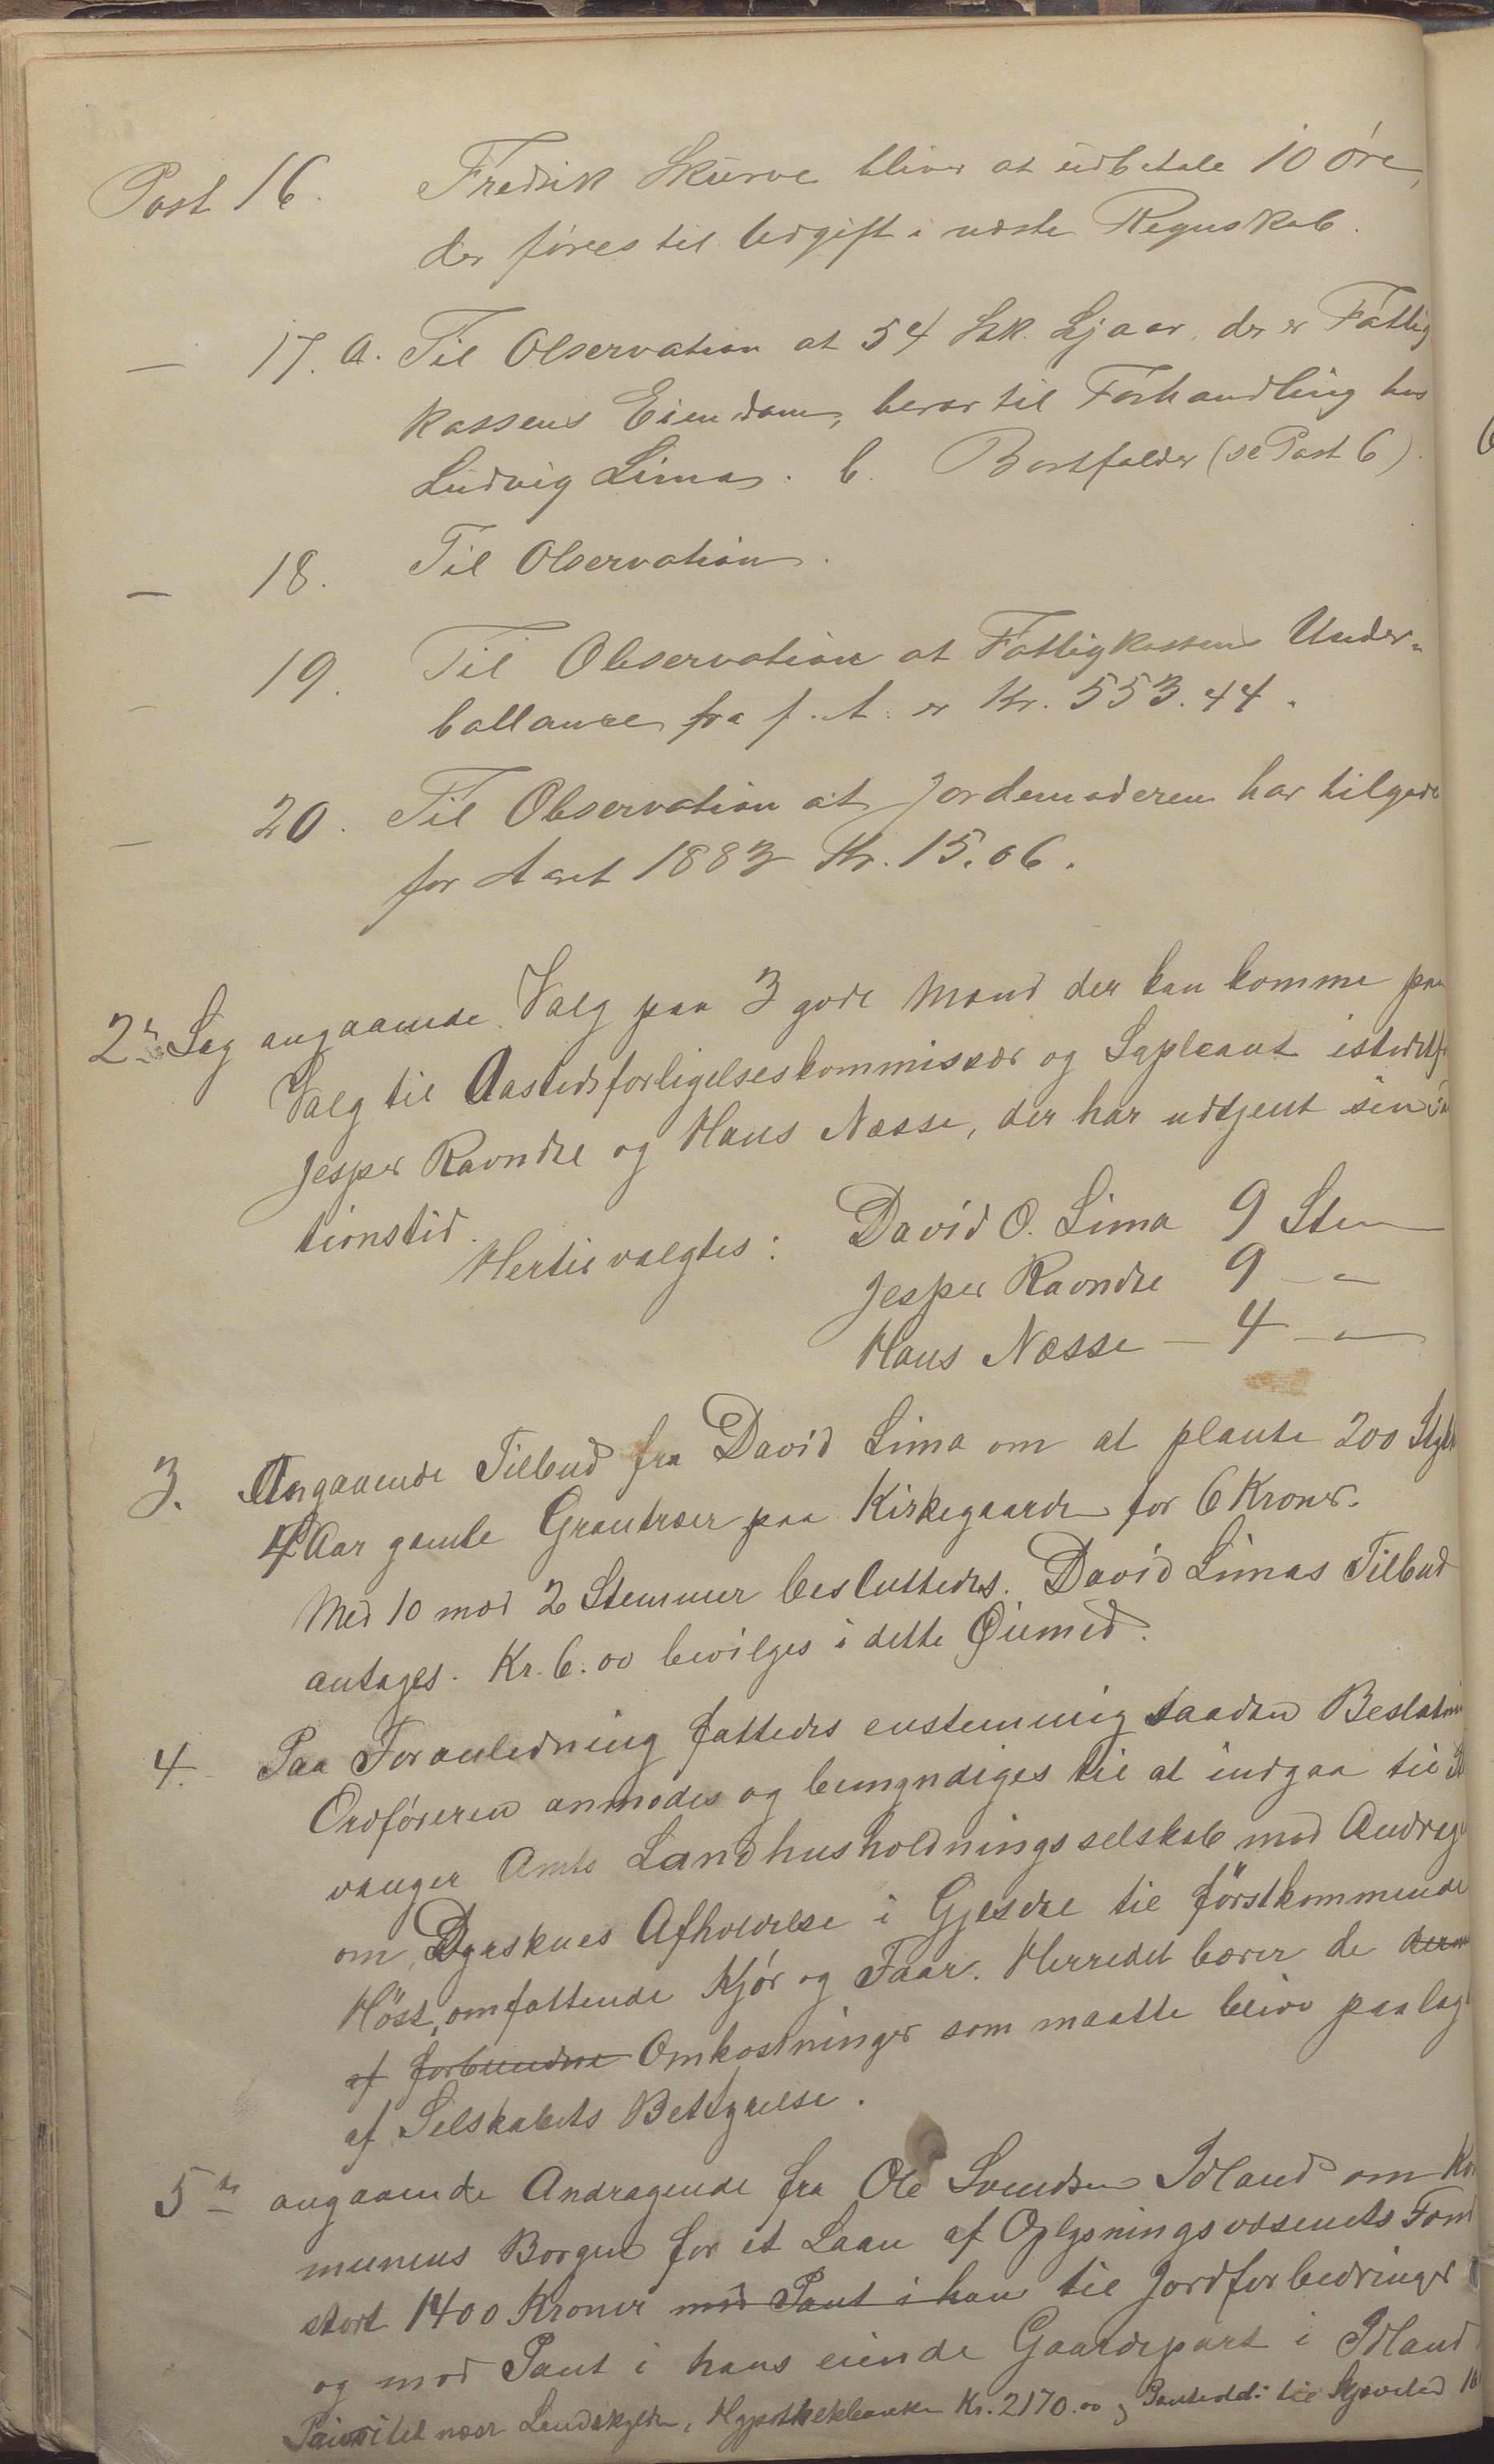 Post 16. Fredrik Skurve bliver at udbetale 10 Øre,
der føres til Udgift i næste Regnskab.
— 17. a. Til Observation at 54 Stk. Ljaar, der er Fattig
kassens Eiendom, beror til Forhandling hos
Ludvig Lima. b. Bortfalder (se Post 6).
— 18. Til Observation.
— 19. Til Observation at Fattigkassens Under-
ballance fra f. A. er Kr. 553.44.
— 20. Til Observation at Jordemoderen har tilgode
for Aaret 1883 Kr. 15.06.
2n Sag angaaende Valg paa 3 gode Mænd der kan komme paa
Valg til Aastedsforligelseskommissær og Supleant istedetf
Jesper Ravndal og Hans Næsse, der har udtjent sin
tionstid.
Hertil valgtes: David O. Lima 9 Stem
Jesper Ravndal 9 — " —
Hans Næsse — 4 — " —
3. Angaaende Tilbud fra David Lima om at plante 200 Stykk
4 Aar gamle Grantræer paa Kirkegaarden for 6 Kroner.
Med 10 mod 2 Stemmer besluttedes. David Limas Tilbud
antages. Kr. 6.00 bevilges i dette Øiemed.
4. Paa Foranledning fattedes enstemmig saadan Beslutni
Ordføreren anmodes og bemyndiges til at indgaa til St
vanger Amts Landhusholdningsselskab med Andrage
om Dyrskues Afholdelse i Gjesdal til førstkommende
Høst, omfattende Kjør og Faar. Herredet bærer de der
af forbundne Omkostninger som maatte blive paalagt
af Selskabets Bestyrelse.
5te angaaende Andragende fra Ole Svendsen Idland om Kom
munens Borgen for et Laan af Oplysningsvæsenets Fond
stort 1400 Kroner mod Pant i han til Jordforbedringer
og mod Pant i hans eiende Gaardepart i Idland
Prioritet næst Landskylden, Hypothekbanken Kr. 2170.00 og